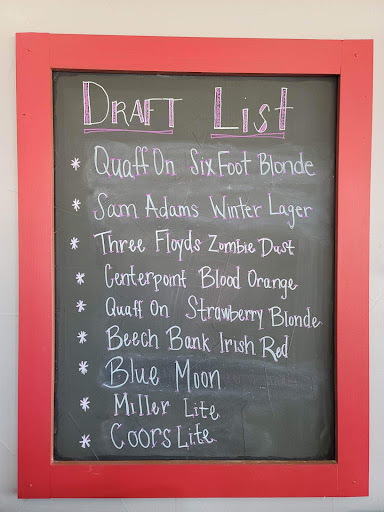 DRAFT List
* Quaff On Six Foot Blonde
* Sam Adams Winter Lager
* Three Floyds Zombie Dust
* Centerpoint Blood Orange
* Quaff On Strawberry Blonde
* Beech Bank Irish Red
* Blue Moon
* Miller Lite
* Coors Lite